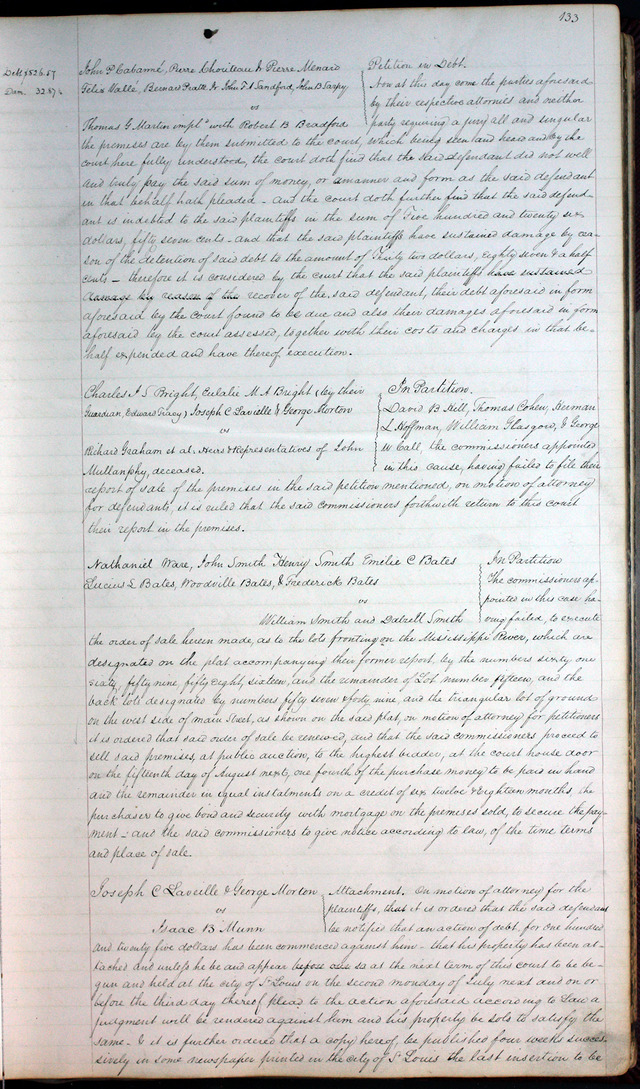 133
Debt $526.57
Dam. 32.87½
John P Cabanné, Pierre Chouteau Jr Pierre Menard
Felix Vallé, Bernard Pratte Jr John F A Sandford, John B Sarpy
vs
Thomas G. Martin impld with Robert B Bradford
Petition in Debt.
Now at this day come the parties aforesaid
by their respective attornies and neither
party requiring a jury all and singular
the premises are by them submitted to the court, which being seen and heard and by the
court here fully understood, the court doth find that the said defendant did not well
and truly pay the said sum of money, or a manner and form as the said defendant
in that behalf hath pleaded - and the court doth further find that the said defend-
ant is indebted to the said plaintiffs in the sum of Five hundred and twenty six
dollars, fifty seven cents - and that the said plaintiffs have sustained damage by rea-
son of the detention of said debt to the amount of Thirty two dollars, Eighty seven & a half
cents - therefore it is considered by the court that the said plaintiffs have sustained
damage by reason of the recover of the said defendant, their debt aforesaid in form
aforesaid by the court found to be due and also their damages aforesaid in form
aforesaid by the court assessed, together with their costs and charges in that be-
half expended and have thereof execution.
Charles J S Bright, Eulalie M A Bright (by their
Guardian, Edward Tracy) Joseph C Laveille & George Morton
vs
Richard Graham et al. Heirs & Representatives of John
Mullanphy, deceased.
In Partition.
David B Hill, Thomas Cohen, Herman
L Hoffman, William Glasgow, & George
W Call, the commissioners appointed
in this cause, having failed to file their
report of sale of the premises in the said petition mentioned, on motion of attorney
for defendants, it is ruled that the said commissioners forthwith return to this court
their report in the premises.
Nathaniel Ware, John Smith Henry Smith Emilie C Bates
Lucius L Bates, Woodville Bates, & Frederick Bates
vs
William Smith and Dalzell Smith
In Partition
The commissioners ap-
pointed in this case ha-
ving failed, to execute
the order of sale herein made, as to the lots fronting on the Mississippi River, which are
designated on the plat accompanying their former report, by the numbers sixty one
sixty, fifty nine, fifty eight, sixteen, and the remainder of Lot number fifteen, and the
back lots designated by numbers fifty seven & forty nine, and the triangular lot of ground
on the west side of main Street, as shown on the said plat, on motion of attorney for petitioners
it is ordered that said order of sale be renewed, and that the said commissioners proceed to
sell said premises, at public auction, to the highest bidder, at the court house door
on the fifteenth day of August next, one fourth of the purchase money to be paid in hand
and the remainder in equal instalments on a credit of six twelve & Eighteen months, the
purchaser to give bond and security with mortgage on the premises sold, to secure the pay-
ment - and the said commissioners to give notice according to law, of the time terms
and place of sale.
Joseph C Laveille & George Morton
vs
Isaac B Munn
Attachment. On motion of attorney for the
plaintiffs, that it is ordered that the said defendant
be notified that an action of debt, for One hundred
and twenty five dollars has been commenced against him - that his property has been at-
tached and unless he be and appear before our so at the next term of this court to be be-
gun and held at the city of St Louis on the second monday of July next and on or
before the third day thereof plead to the action aforesaid according to Law a
judgment will be rendered against him and his property be sold to satisfy the
same - & it is further ordered that a copy hereof, be published four weeks succes
sively in some newspaper printed in the city of St Louis the last insertion to be